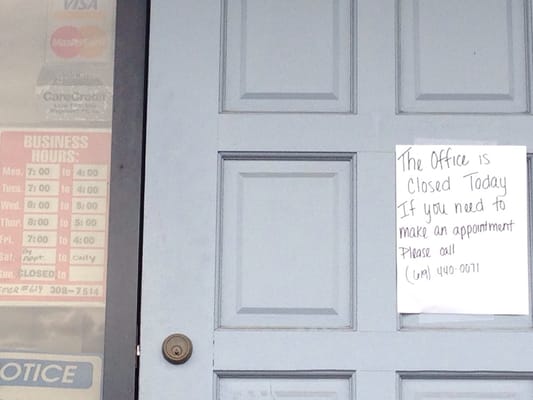 VISA
MasterCard
CareCredit
BUSINESS
HOURS:
Mon. 7:00 to 4:00
Tues. 7:00 to 4:00
Wed. 8:00 to 5:00
Thur. 8:00 to 5:00
Fri. 7:00 to 4:00
Sat. By Appt. to only
Sun. CLOSED to
308-7514
NOTICE
The Office is
Closed Today
If you need to
make an appointment
Please call
(619) 440-0071